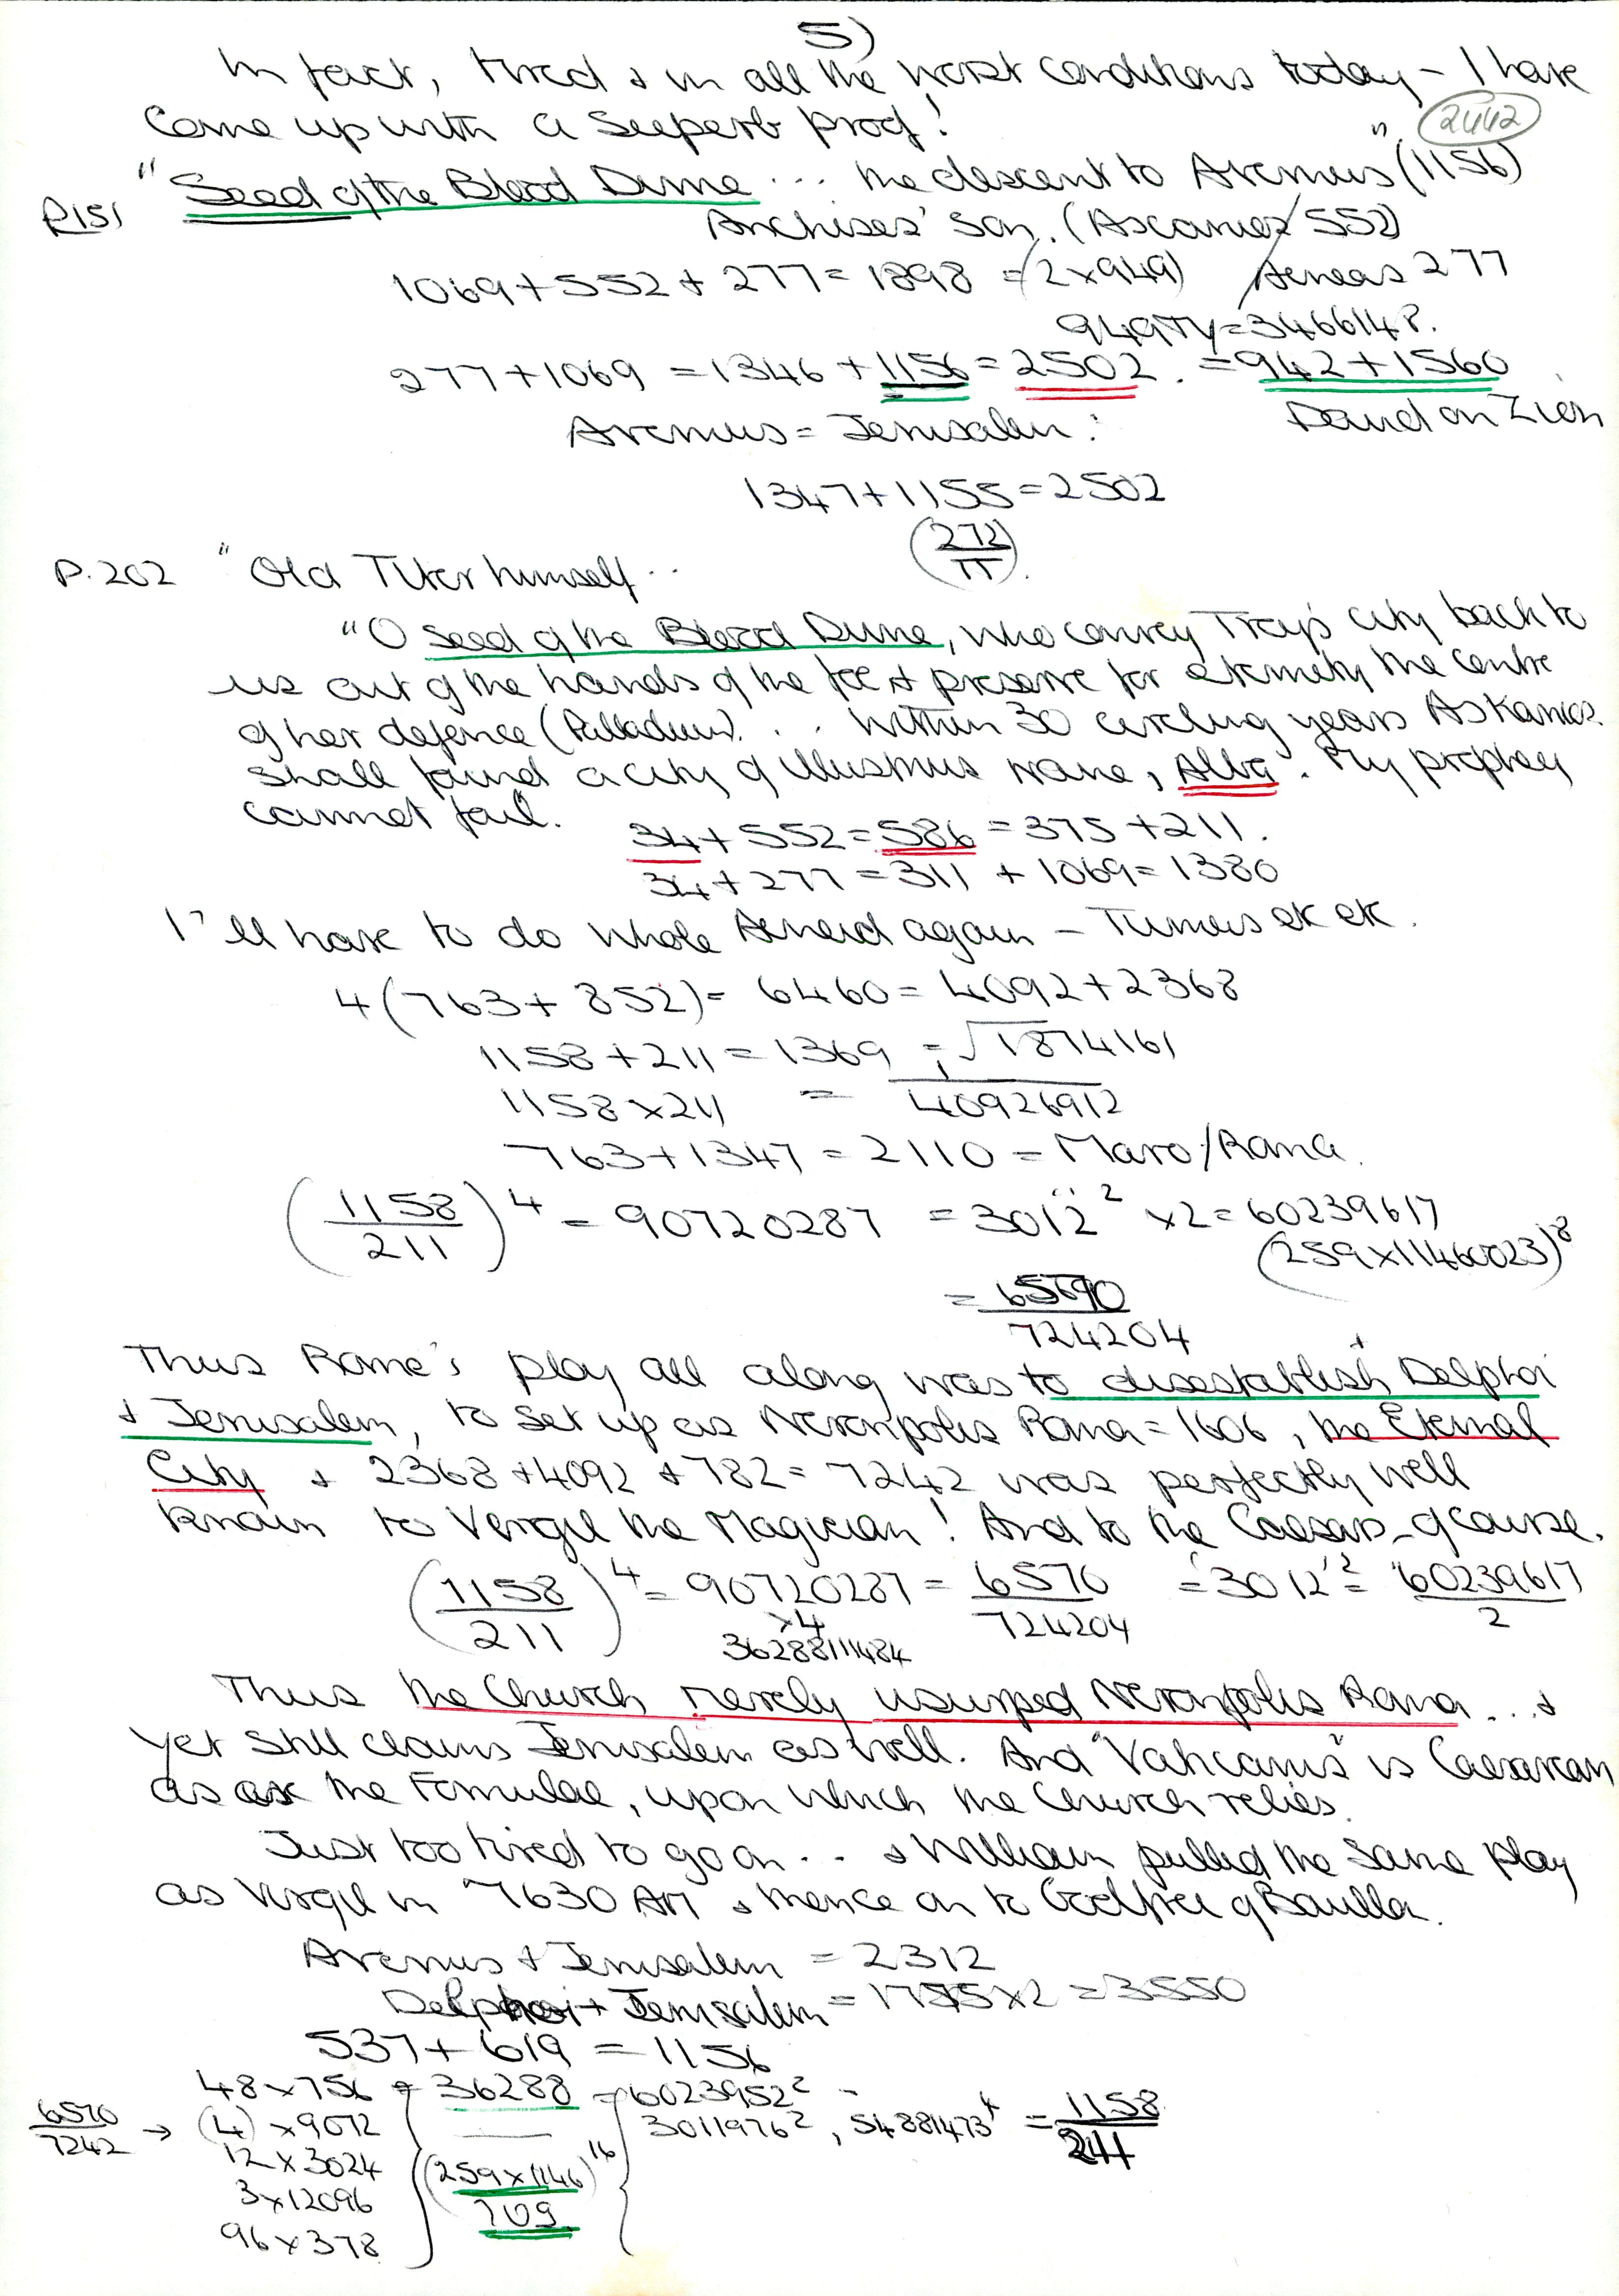 5)
In fact, tired & in all the worst conditions today – I have
come up with a superb proof!
2442
P151 "Seed of the Blood Divine ... the descent to Avernus" (1156)
Anchises' Son. (Ascanios 552)
1069 + 552 + 277 = 1898 = (2 x 949) Aeneas 277
949π = 3466148.
277 + 1069 = 1346 + 1156 = 2502. = 942 + 1560
Avernus = Jerusalem: David on Zion
1347 + 1155 = 2502
(272/π)
P.202 "Old Tiber himself ..
"O seed of the Blood Divine, who convey Troy's city back to
us out of the hands of the foe & preserve for eternity the centre
of her defence (Palladium). .. Within 30 circling years Askanios
shall found a city of illustrious name, Alba. My prophecy
cannot fail.
34 + 552 = 586 = 375 + 211.
34 + 277 = 311 + 1069 = 1380
I'll have to do whole Aeneid again – Turnus ek ek.
4(763 + 852) = 6460 = 4092 + 2368
1158 + 211 = 1369 = √1874161
1158 x 211 = 1/40926912
763 + 1347 = 2110 = Maro/Roma.
(1158/211)^4 = 90720287 = 3012² x 2 = 60239617
(259 x 11460023)^8
= 6570/724204
Thus Rome's play all along was to disestablish Delphoi
& Jerusalem, to set up as Neronpolis Roma = 1606, the Eternal
City & 2368 + 4092 + 782 = 7242 was perfectly well
known to Vergil the Magician! And to the Caesars – of course.
(1158/211)^4 = 90720287 = 6570/724204 = '3012'² = 60239617/2
x4
36288111484
Thus the Church merely usurped Neronpolis Roma ... &
yet still claims Jerusalem as well. And "Vaticanus" is Caesarean
as are the Formulae, upon which the Church relies.
Just too tired to go on ... & William pulled the same play
as Virgil in 7630 AM & thence on to Godfroi of Bouillon.
Avernus & Jerusalem = 2312
Delphoi + Jerusalem = 1775 x 2 = 3550
537 + 619 = 1156
48 x 756 = 36288 = 6023952² =
6570/7242 → (4) x 9072 3011976², 54881473^4 = 1158/211
12 x 3024 (259 x 1146)^16
3 x 12096 709
96 x 378